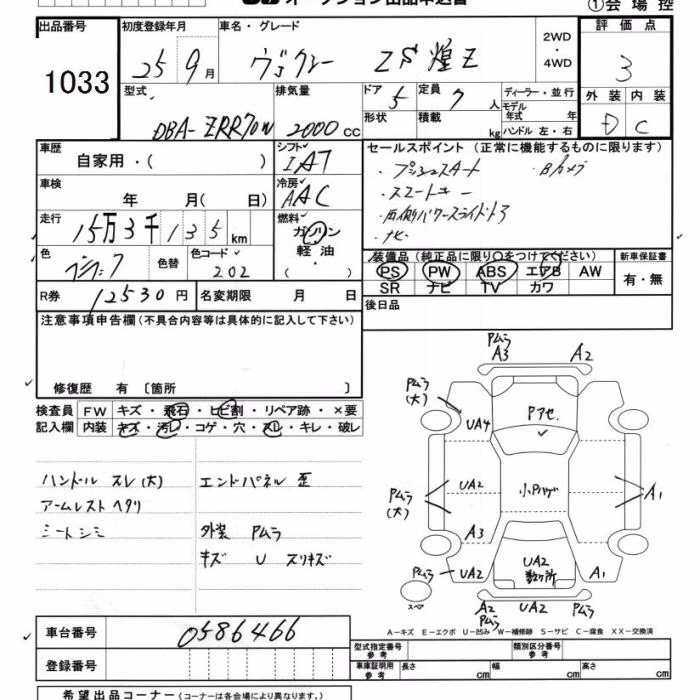 オークション出品申込書
①会場控
出品番号
1033
初度登録年月
25 9月
車名・グレード
ヴォクシー ZS 煌Z
2WD・4WD
評価点
3
外装 内装
D C
型式
DBA-ZRR70W
排気量
2000cc
ドア
5
形状
定員
7人
積載
kg
ディーラー・並行
モデル年式 年
ハンドル 左・右
車歴
自家用・( )
シフト
IAT
冷房
AAC
車検
年 月( 日)
走行
15万3千135km
燃料
ガソリン
軽油
・
( )
色
ブラック
色替
色コード
202
R券
12530円
名変期限 月 日
セールスポイント(正常に機能するものに限ります)
・プッシュスタート ・Bカメラ
・スマートキー
・両側パワースライドドア
・ナビ
装備品(純正品に限り○をつけてください)
PS PW ABS エアB AW
SR ナビ TV カワ
新車保証書
有・無
後日品
注意事項申告欄(不具合内容等は具体的に記入して下さい)
修復歴 有 〔箇所 〕
検査員記入欄
FW キズ・飛石・ヒビ割・リペア跡・×要
内装 キズ・汚レ・コゲ・穴・スレ・キレ・破レ
ハンドル スレ(大)
アームレスト ヘタリ
シート シミ
エンドパネル 歪
外装 Pムラ
キズ U スリキズ
Pムラ
A3 A2
Pムラ(大)
UA4
Pアセ
UA2
Pムラ(大)
小Pハゲ
A1
A3
Pムラ
UA2
UA2
数ヶ所
A1
スペア
A2 UA2
Pムラ Pムラ
A−キズ E−エクボ U−凹み W−補修跡 S−サビ C−腐食 XX−交換済
車台番号
0586466
登録番号
型式指定番号
参考
類別区分番号
参考
車庫証明用
参考
長さ cm 幅 cm 高さ cm
希望出品コーナー(コーナーは各会場により異なります。)